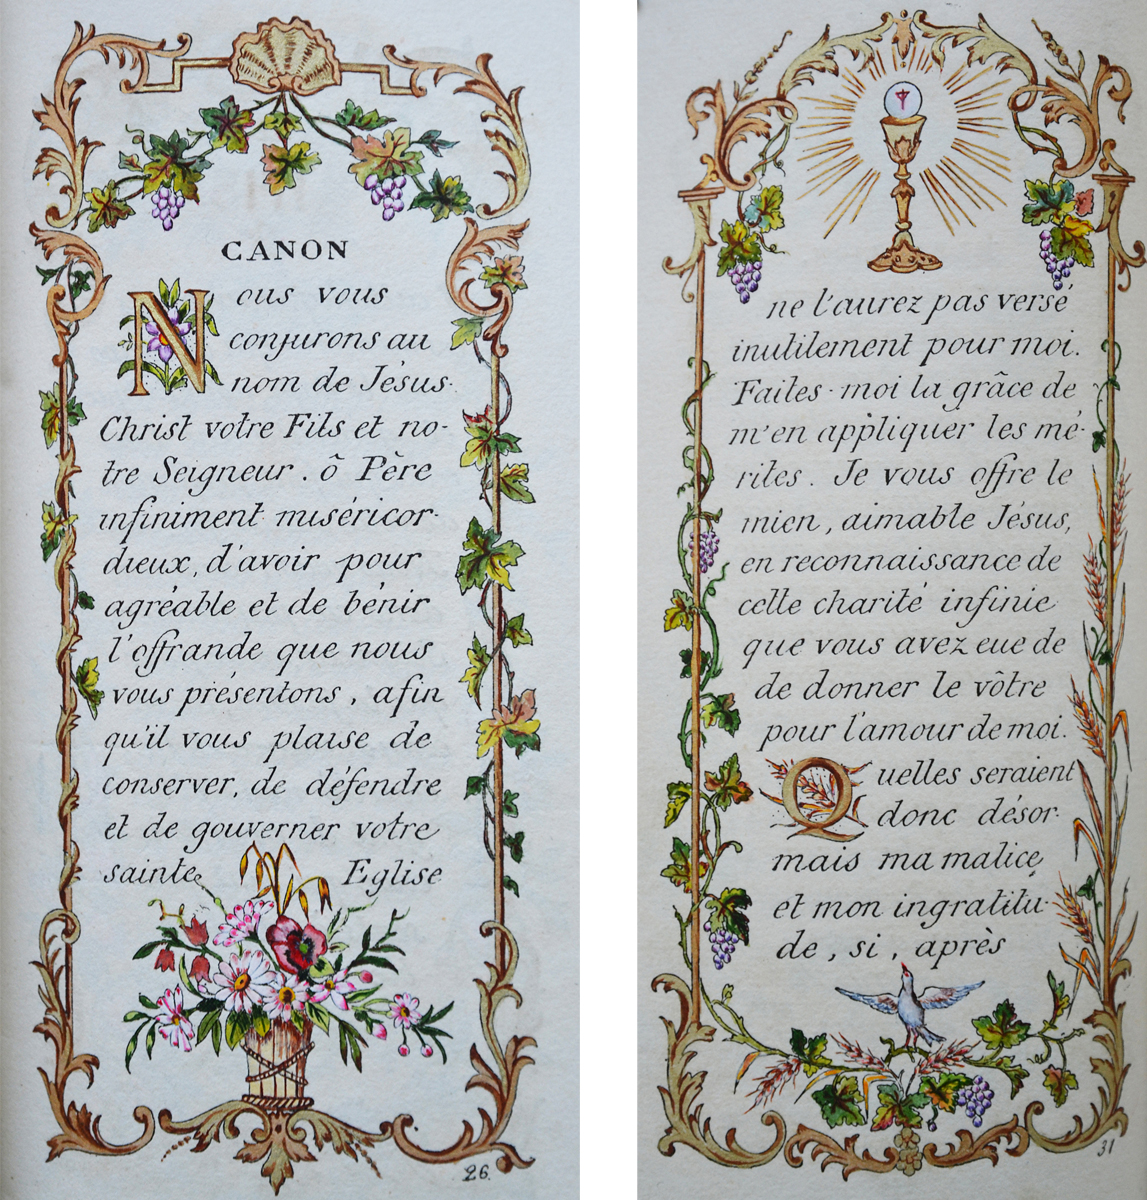 CANON
Nous vous
conjurons au
nom de Jésus-
Christ votre Fils et no-
tre Seigneur. ô Père
infiniment miséricor-
dieux, d'avoir pour
agréable et de bénir
l'offrande que nous
vous présentons, afin
qu'il vous plaise de
conserver, de défendre
et de gouverner votre
sainte Eglise
26.
ne l'aurez pas versé
inutilement pour moi.
Faites-moi la grâce de
m'en appliquer les mé-
rites. Je vous offre le
mien, aimable Jésus,
en reconnaissance de
cette charité infinie
que vous avez eue de
de donner le vôtre
pour l'amour de moi.
Quelles seraient
donc désor-
mais ma malice
et mon ingratitu-
de, si, après
31